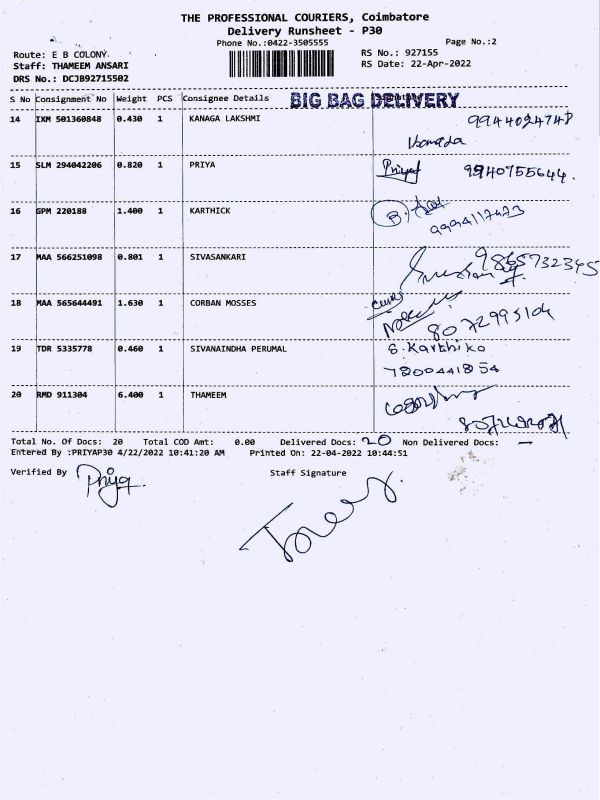 THE PROFESSIONAL COURIERS, Coimbatore
Delivery Runsheet - P30
Phone No.:0422-3505555
Page No.:2
Route: E B COLONY.
RS No.: 927155
Staff: THAMEEM ANSARI
RS Date: 22-Apr-2022
DRS No.: DCJB92715502
S No Consignment No Weight PCS Consignee Details BIG BAG DELIVERY
14 IXM 501360848 0.430 1 KANAGA LAKSHMI
15 SLM 294042206 0.820 1 PRIYA Priya 9940755644.
16 GPM 220188 1.400 1 KARTHICK
17 MAA 566251098 0.801 1 SIVASANKARI 9865732345
18 MAA 565644491 1.630 1 CORBAN MOSSES
8072995104
19 TDR 5335778 0.460 1 SIVANAINDHA PERUMAL S. Karthika
7800441854
20 RMD 911304 6.400 1 THAMEEM
Total No. Of Docs: 20 Total COD Amt: 0.00 Delivered Docs: 20 Non Delivered Docs: —
Entered By :PRIYAP30 4/22/2022 10:41:20 AM Printed On: 22-04-2022 10:44:51
Verified By Priya. Staff Signature